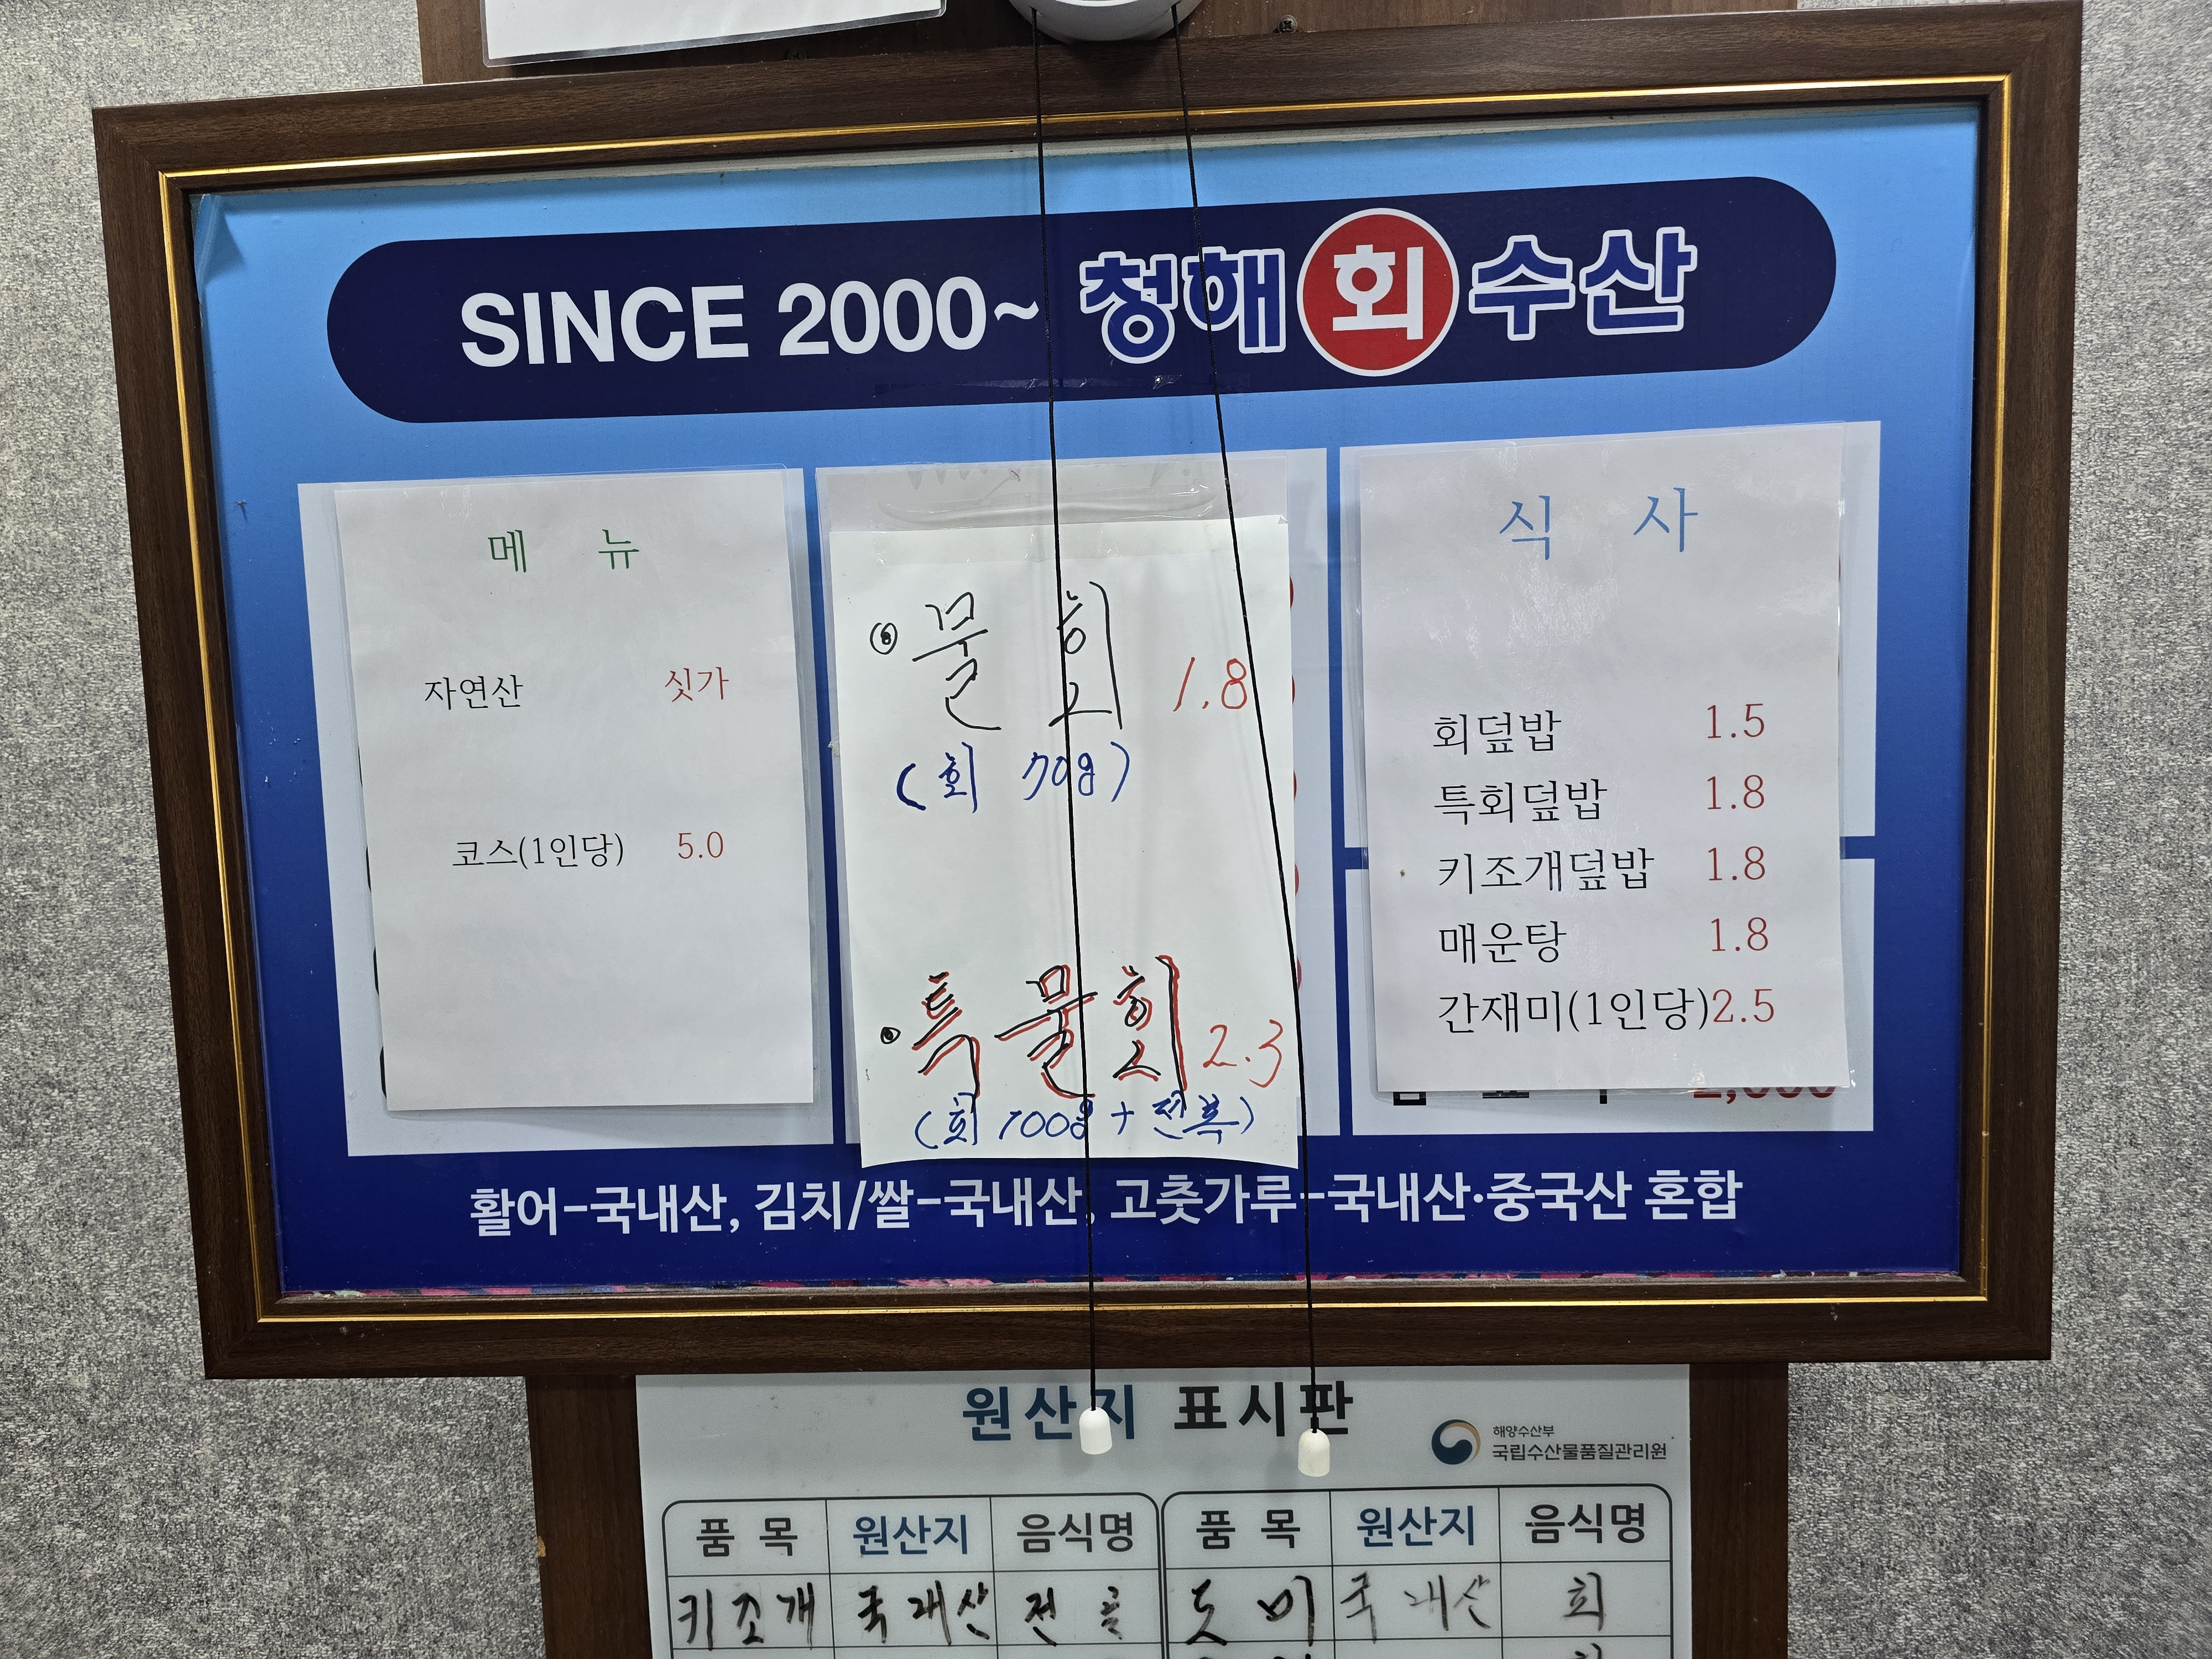 SINCE 2000~ 청해 회 수산
메 뉴
자연산 싯가
코스(1인당) 5.0
물 회 1.8
(회 70g)
특 물 회 2.3
(회 100g + 전복)
식 사
회덮밥 1.5
특회덮밥 1.8
키조개덮밥 1.8
매운탕 1.8
간재미(1인당) 2.5
활어-국내산, 김치/쌀-국내산, 고춧가루-국내산·중국산 혼합
원산지 표시판
해양수산부
국립수산물품질관리원
품 목 원산지 음식명 품 목 원산지 음식명
키조개 국내산 전골 도미 국내산 회